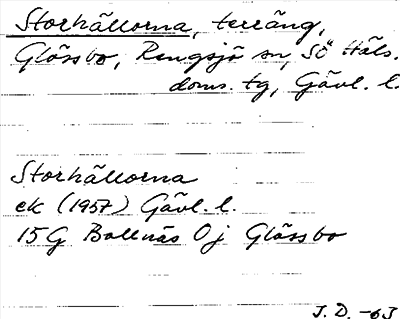 Storhällorna, terräng,
Glössbo, Rengsjö sn, Sö Häls.
doms. tg, Gävl. l.
Storhällorna
ek (1957) Gävl. l.
15G Bollnäs 0j Glössbo
J. D. -63